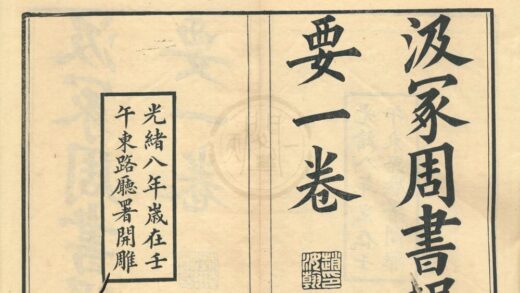 汲冢周書
要一卷
光緒八年歲在壬
午東路廳署開雕